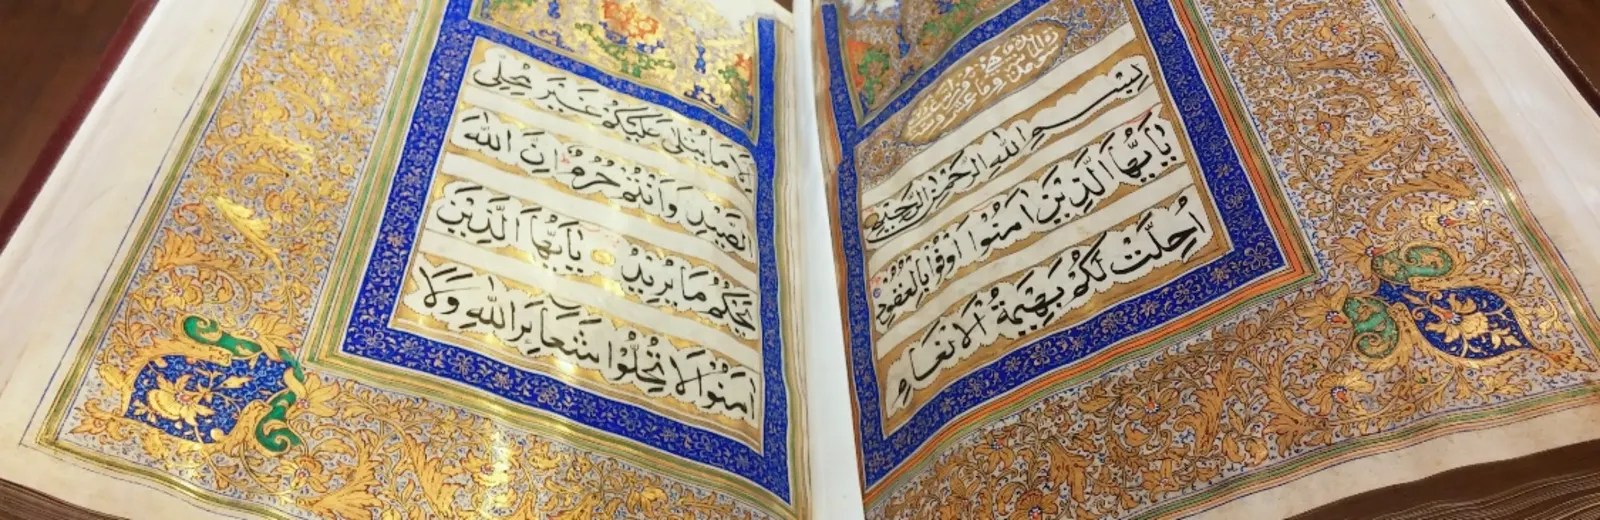 بِسْمِ اللهِ الرَّحْمٰنِ الرَّحِيمِ
يَا أَيُّهَا الَّذِينَ آمَنُوا أَوْفُوا بِالْعُقُودِ
أُحِلَّتْ لَكُمْ بَهِيمَةُ الْأَنْعَامِ
إِلَّا مَا يُتْلَى عَلَيْكُمْ غَيْرَ مُحِلِّي
الصَّيْدِ وَأَنْتُمْ حُرُمٌ إِنَّ اللهَ
يَحْكُمُ مَا يُرِيدُ يَا أَيُّهَا الَّذِينَ
آمَنُوا لَا تُحِلُّوا شَعَائِرَ اللهِ وَلَا